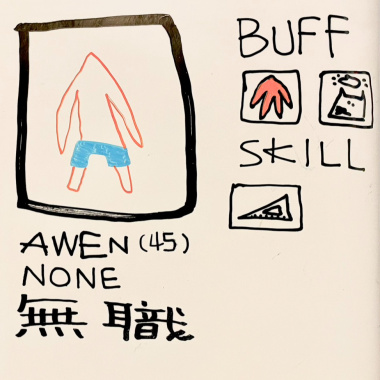 BUFF
SKILL
AWEN (45)
NONE
無職